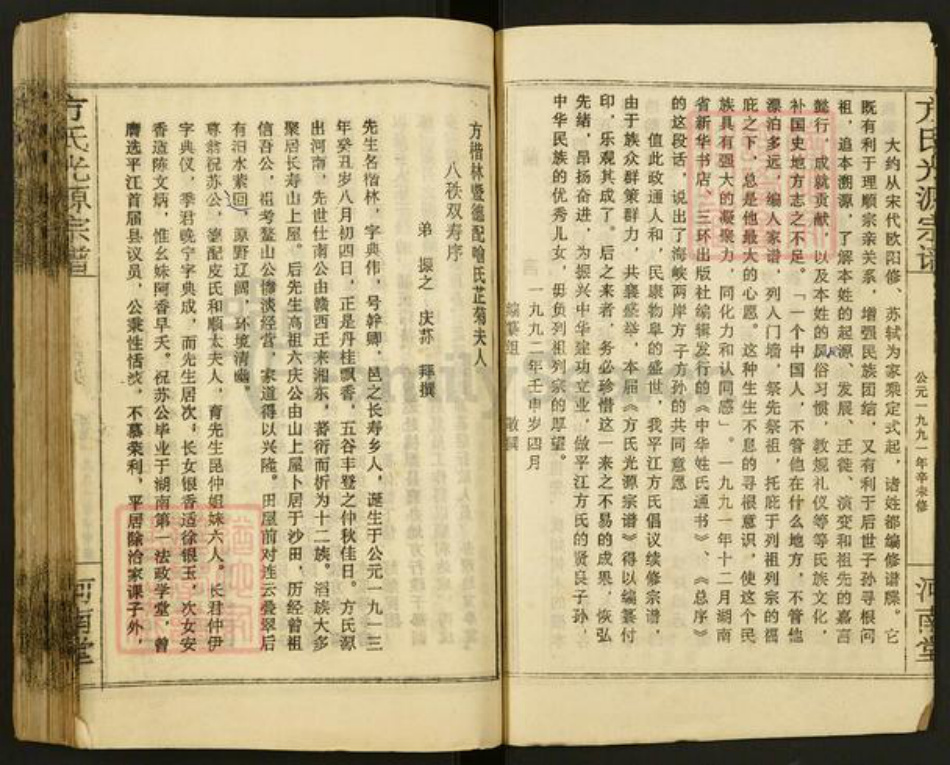 方氏光源宗谱
公元一九九一年辛未修
河南堂
大约从宋代欧阳修、苏轼为家乘定式起，诸姓都编修谱牒。它
既有利于理顺宗亲关系，增强民族团结，又有利于后世子孙寻根问
祖，追本溯源，了解本姓的起源、发展、迁徙、演变和祖先的嘉言
懿行，成就贡献，以及本姓的风俗习惯，教规礼仪等等氏族文化，
补国史地方志之不足。「一个中国人，不管他在什么地方，不管他
漂泊多远，编入家谱，列入门墙，祭先祭祖，托庇于列祖列宗的福
庇之下，总是他最大的心愿。这种生生不息的寻根意识，使这个民
族具有强大的凝聚力，同化力和认同感」。一九九一年十二月湖南
省新华书店、三环出版社编辑发行的《中华姓氏通书》、《总序》
的这段话，说出了海峡两岸方子方孙的共同意愿
值此政通人和，民康物阜的盛世，我平江方氏倡议续修宗谱，
由于族众群策群力，共襄盛举，本届《方氏光源宗谱》得以编纂付
印，乐观其成了。后之来者，务必珍惜这一来之不易的成果，恢弘
先绪，昂扬奋进，为振兴中华建功立业，做平江方氏的贤良子孙，
中华民族的优秀儿女，毋负列祖列宗的厚望。
一九九二年壬申岁四月
编纂组 敬撰
方楷林暨德配喻氏芷菊夫人
八秩双寿序
弟 振之 庆荪 拜撰
先生名楷林，字典伟，号幹卿，邑之长寿乡人，诞生于公元一九一三
年癸丑岁八月初四日，正是丹桂飘香，五谷丰登之仲秋佳日。方氏源
出河南，先世仕南公由赣西迁来湘东，蕃衍而析为十二族。滔族大多
聚居长寿山上屋。后先生高祖六庆公由山上屋卜居于沙田，历经曾祖
信吾公，祖考鳌山公惨淡经营，家道得以兴隆。田屋前对连云叠翠后
有汨水萦回，原野辽阔，环境清幽。
尊翁祝苏公，德配皮氏和顺太夫人，育先生昆仲姐妹六人。长君仲伊
字典仪，季君晚宁字典成，而先生居次；长女银香适徐银玉，次女安
香适陈文炳，惟幺妹阿香早夭。祝苏公毕业于湖南第一法政学堂，曾
膺选平江首届县议员，公秉性恬淡，不慕荣利，平居除治家课子外，
方氏光源宗谱
河南堂